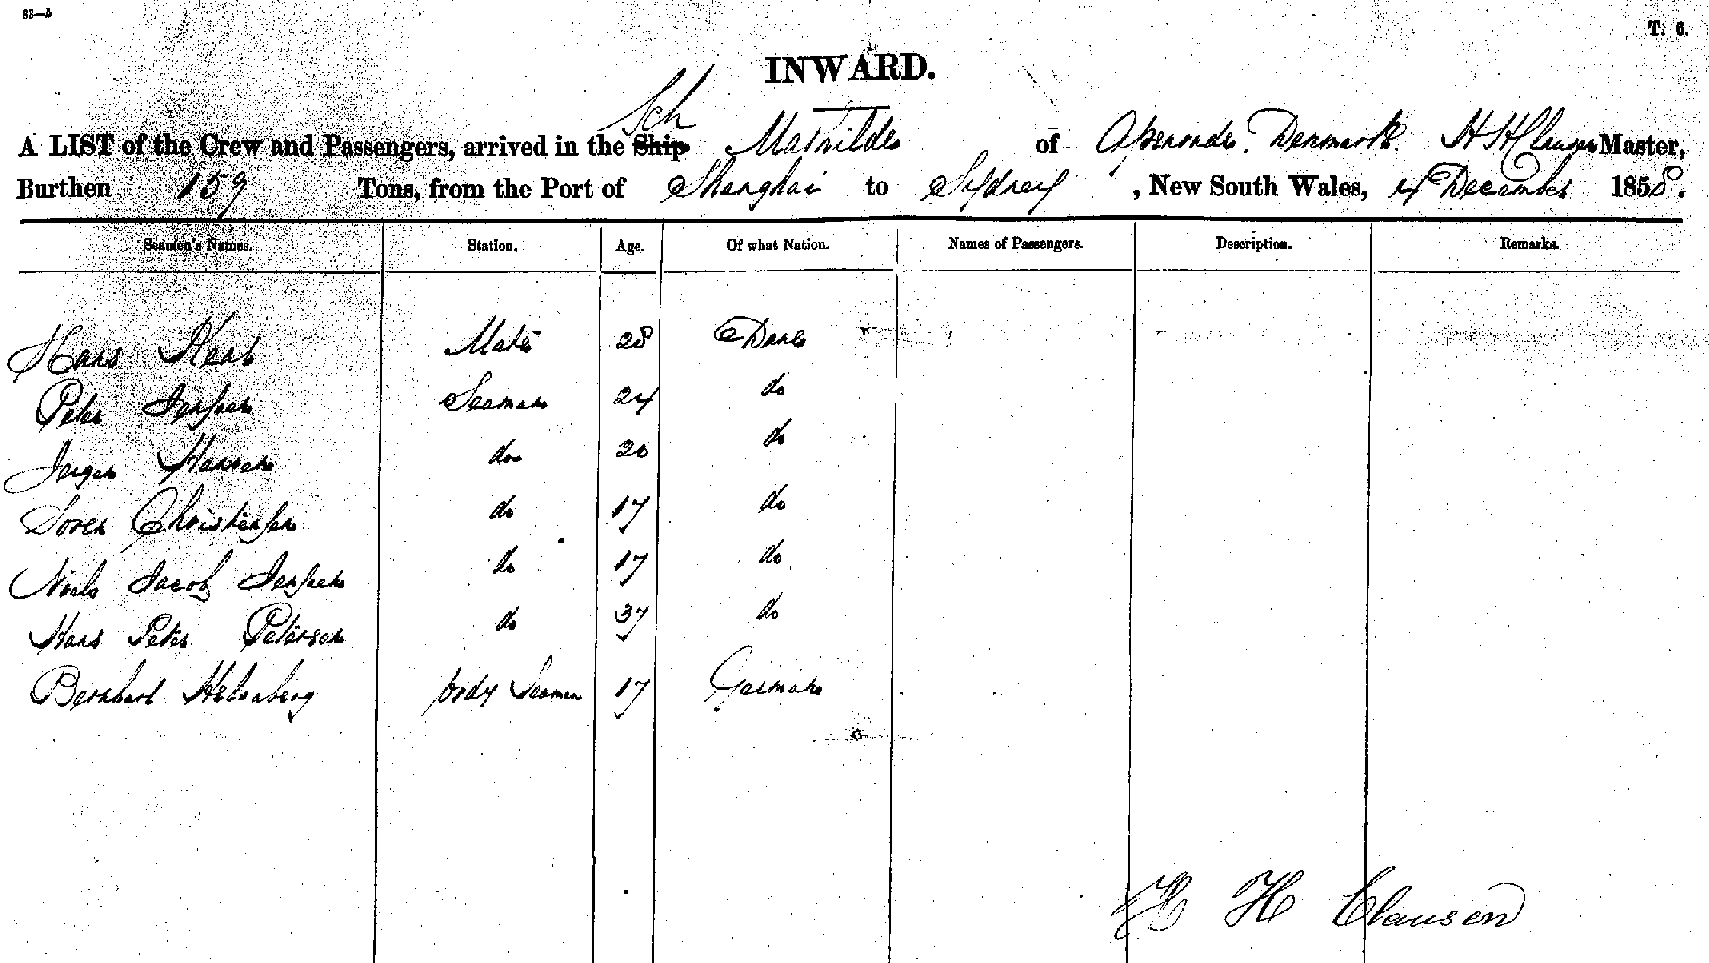 83—b
T. 6.
INWARD.
Sch
A LIST of the Crew and Passengers, arrived in the Ship Mathilde of Apenrade. Denmark H H Clausen Master,
Burthen 159 Tons, from the Port of Shanghai to Sydney, New South Wales, 4 December 1858.
Seamen's Names. Station. Age. Of what Nation. Names of Passengers. Description. Remarks.
Hans Mate 28 Dane
Peter Jensen Seaman 24 do
Jorgen Hansen do 20 do
Soren Christensen do 17 do
Niels Jacob Jensen do 17 do
Hans Peter Petersen do 37 do
Bernhard Seaman 17 German
H H Clausen